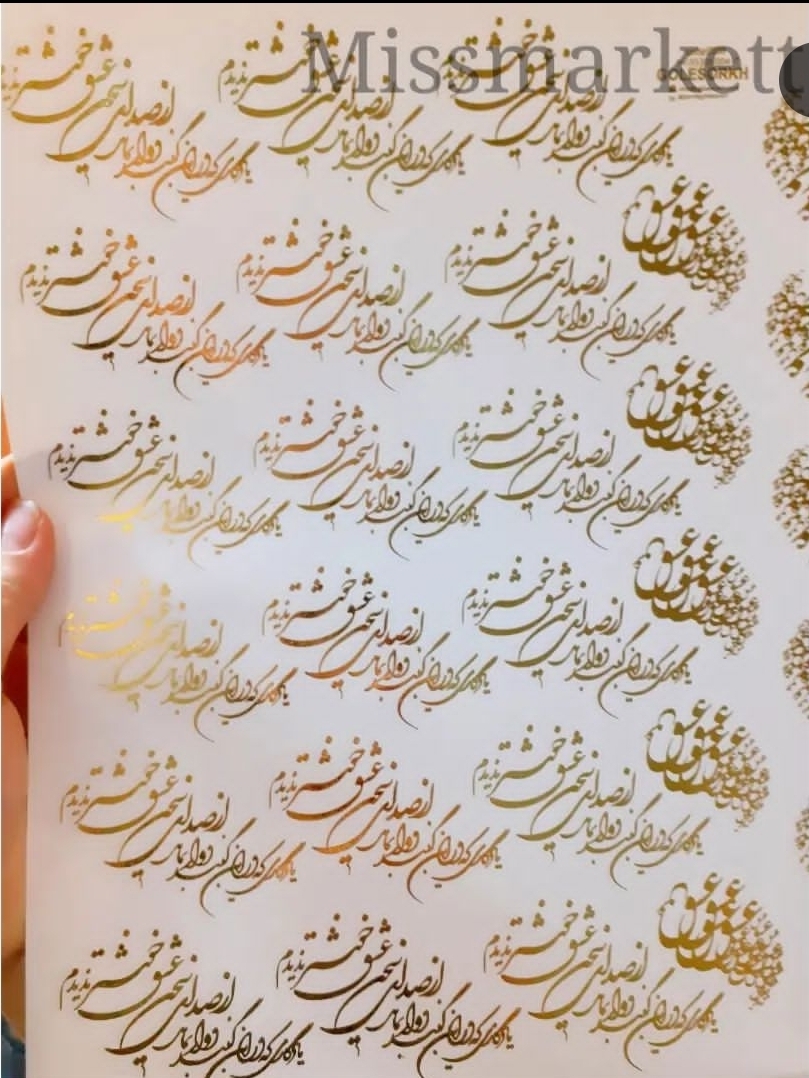 Missmarkett
GOLESORKH
از صدای سخن عشق ندیدم خوشتر
یادگاری که در این گنبد دوار بماند
از صدای سخن عشق ندیدم خوشتر
یادگاری که در این گنبد دوار بماند
از صدای سخن عشق ندیدم خوشتر
یادگاری که در این گنبد دوار بماند
عشق عشق عشق
از صدای سخن عشق ندیدم خوشتر
یادگاری که در این گنبد دوار بماند
از صدای سخن عشق ندیدم خوشتر
یادگاری که در این گنبد دوار بماند
از صدای سخن عشق ندیدم خوشتر
یادگاری که در این گنبد دوار بماند
عشق عشق عشق
از صدای سخن عشق ندیدم خوشتر
یادگاری که در این گنبد دوار بماند
از صدای سخن عشق ندیدم خوشتر
یادگاری که در این گنبد دوار بماند
از صدای سخن عشق ندیدم خوشتر
یادگاری که در این گنبد دوار بماند
عشق عشق عشق
از صدای سخن عشق ندیدم خوشتر
یادگاری که در این گنبد دوار بماند
از صدای سخن عشق ندیدم خوشتر
یادگاری که در این گنبد دوار بماند
از صدای سخن عشق ندیدم خوشتر
یادگاری که در این گنبد دوار بماند
عشق عشق عشق
از صدای سخن عشق ندیدم خوشتر
یادگاری که در این گنبد دوار بماند
از صدای سخن عشق ندیدم خوشتر
یادگاری که در این گنبد دوار بماند
از صدای سخن عشق ندیدم خوشتر
یادگاری که در این گنبد دوار بماند
عشق عشق عشق
از صدای سخن عشق ندیدم خوشتر
یادگاری که در این گنبد دوار بماند
از صدای سخن عشق ندیدم خوشتر
یادگاری که در این گنبد دوار بماند
از صدای سخن عشق ندیدم خوشتر
یادگاری که در این گنبد دوار بماند